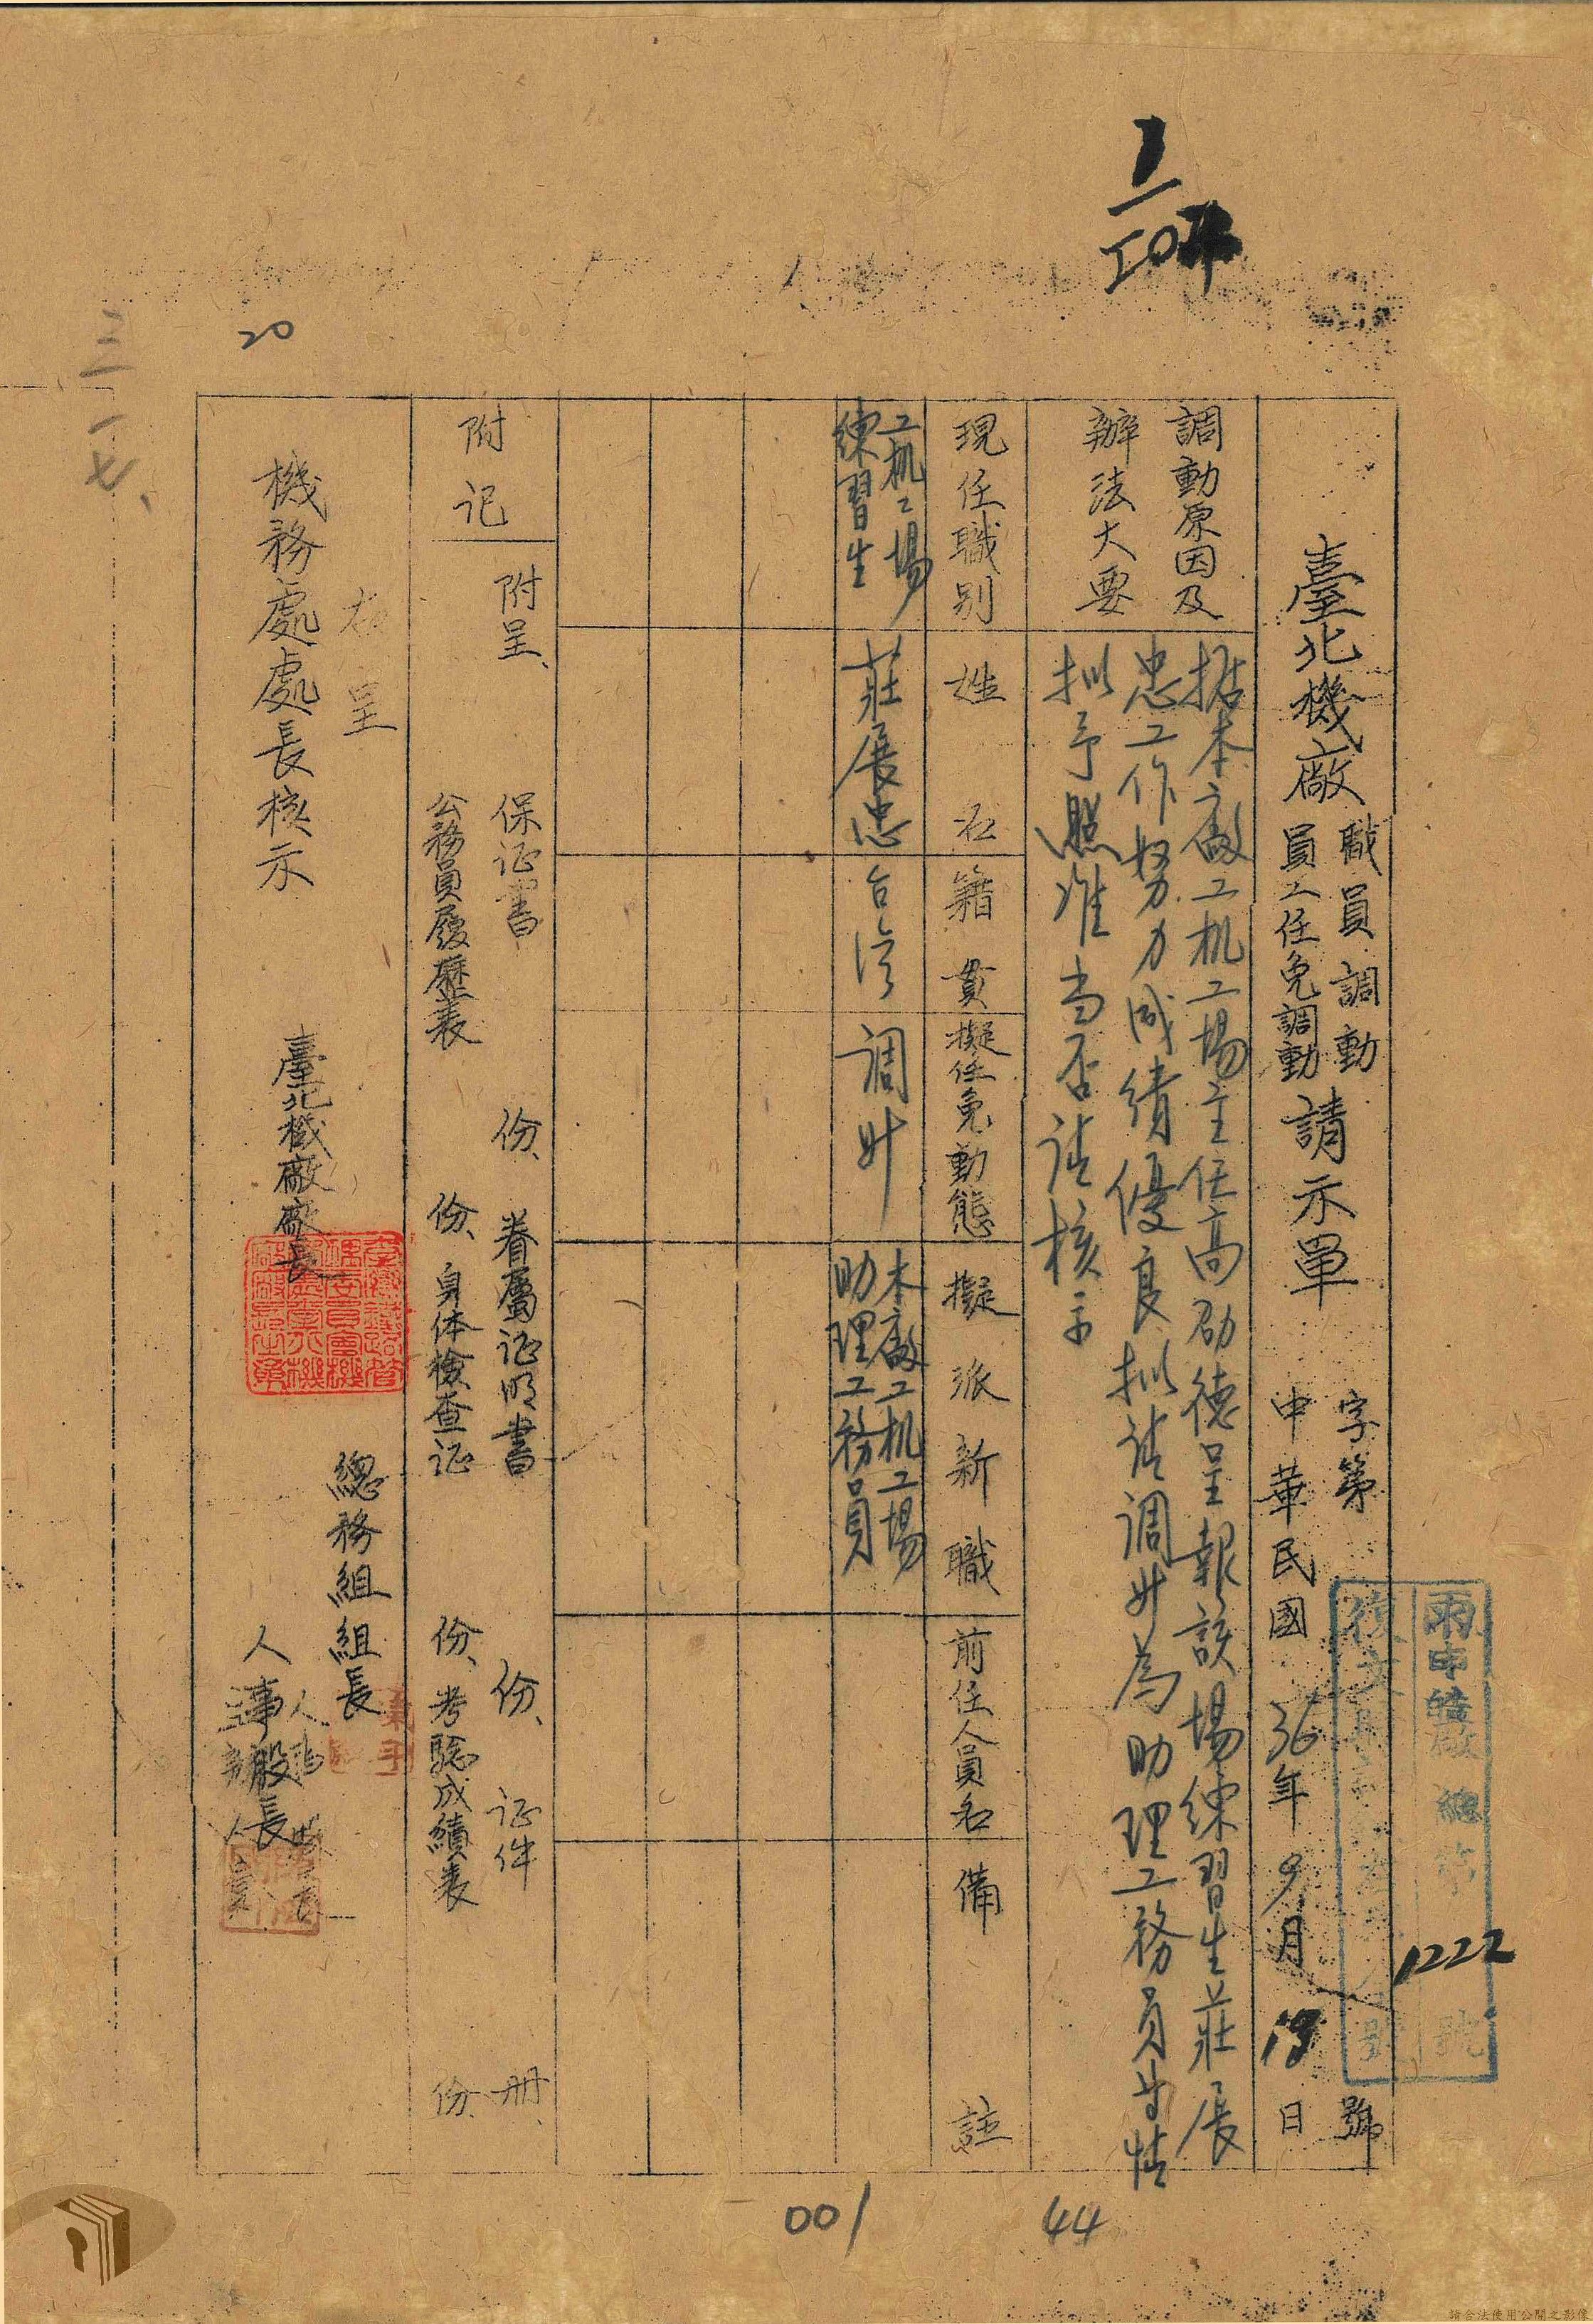 臺北機廠
職員調動
員工任免調動
請示單
字第
號
中華民國36年9月19日
1222
調動原因及
辦法大要
据本廠工机工場主任高劭德呈報該場練習生莊展
忠工作努力成績優良拟請調升為助理工務員等情
拟予照准當否請核示
現任職別
姓名
籍貫
擬任免動態
擬派新職
前任人員名
備註
工机工場
練習生
莊展忠
台灣
調升
本廠工机工場
助理工務員
附记
附呈、
保证書 份、眷屬证明書 份、证件 册、
公務員履歷表 份、身体檢查证 份、考驗成績表 份
右呈
機務處處長核示
臺北機廠廠長
總務組組長
人事股長
20
三一七、
001
44
請合法使用公開之影像